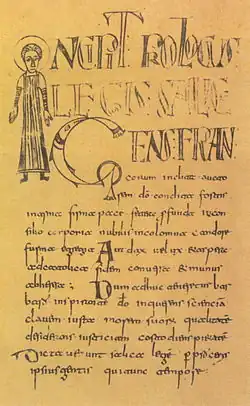 INCIPIT PROLOGUS
LEGIS SALICE
GENS FRAN
corum inclita aucto
rem dō condita fortis
in arma firma pace
silio corporia nobilis incolomna candore
forma egregia Audax velix et aspera
fidem conversa emunis
ab herese Dum adhuc
bara inspirante dō inquerens sciencia
clavem iusta morem suorum qualitate
desiderans iusticiam costodiens pietate
Dictaverunt salica lege per proceris
ipsius gentis qui tunc tempore